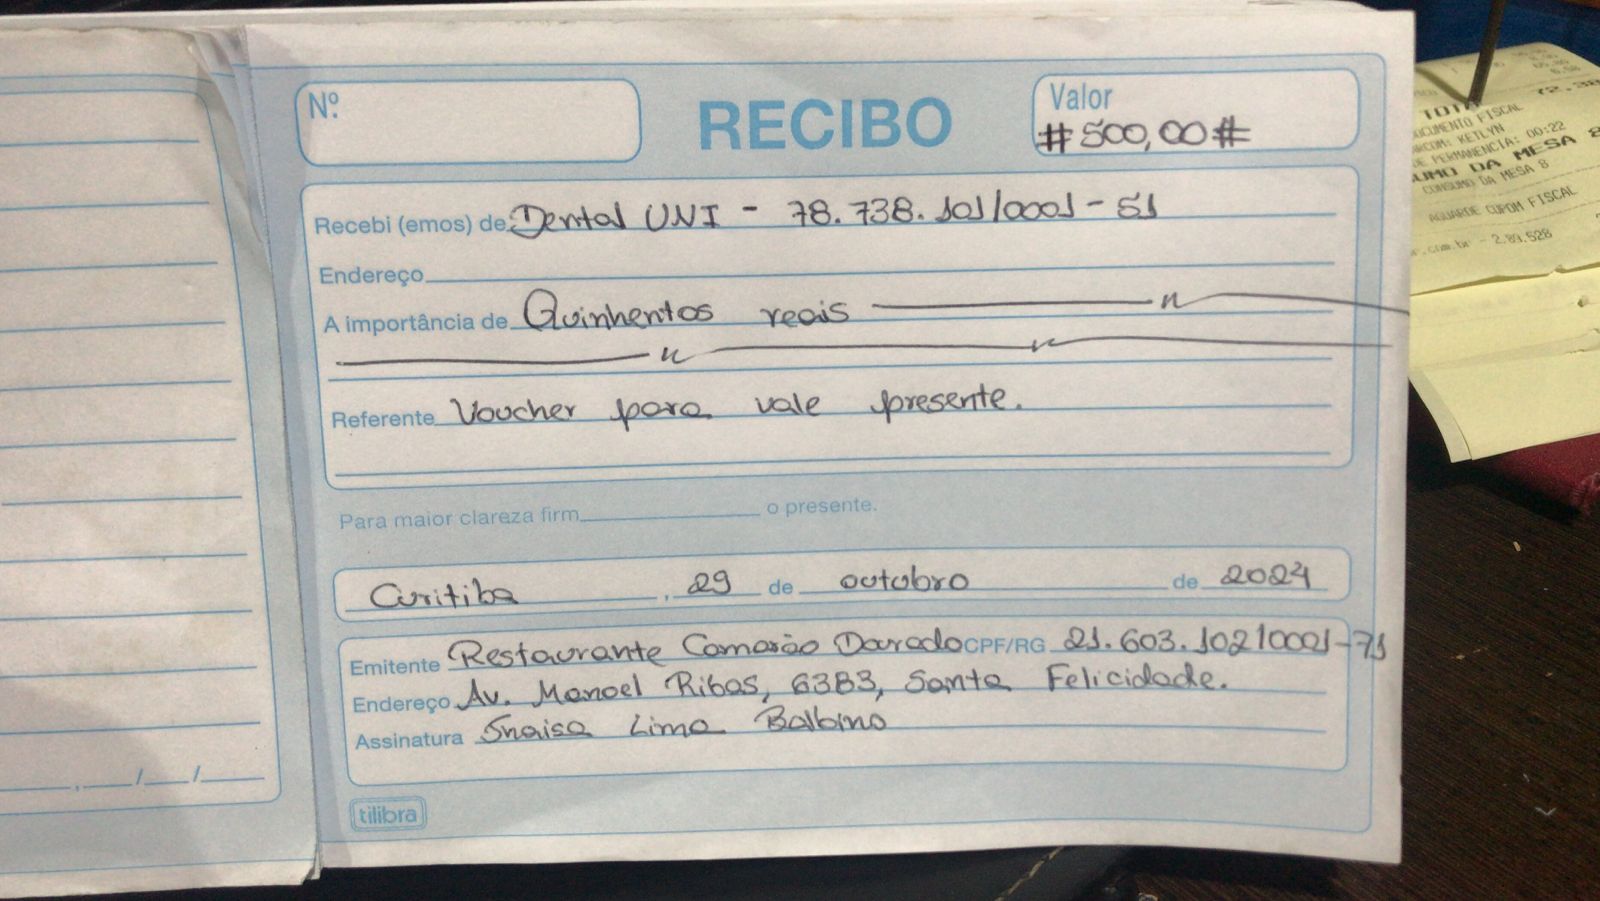 Nº
RECIBO
Valor
#500,00#
Recebi (emos) de Dental UNI - 78.738.101/0001-51
Endereço
A importância de Quinhentos reais
Referente Voucher para vale presente.
Para maior clareza firm o presente.
Curitiba, 29 de outubro de 2024
Emitente Restaurante Camarão Dourado CPF/RG 21.603.102/0001-71
Endereço Av. Manoel Ribas, 6383, Santa Felicidade.
Assinatura Lima Balbino
tilibra
72,38
TOTAL
DOCUMENTO FISCAL
KETLYN
PERMANENCIA: 00:22
CONSUMO DA MESA 8
AGUARDE CUPOM FISCAL
.com.br - 2.89.528